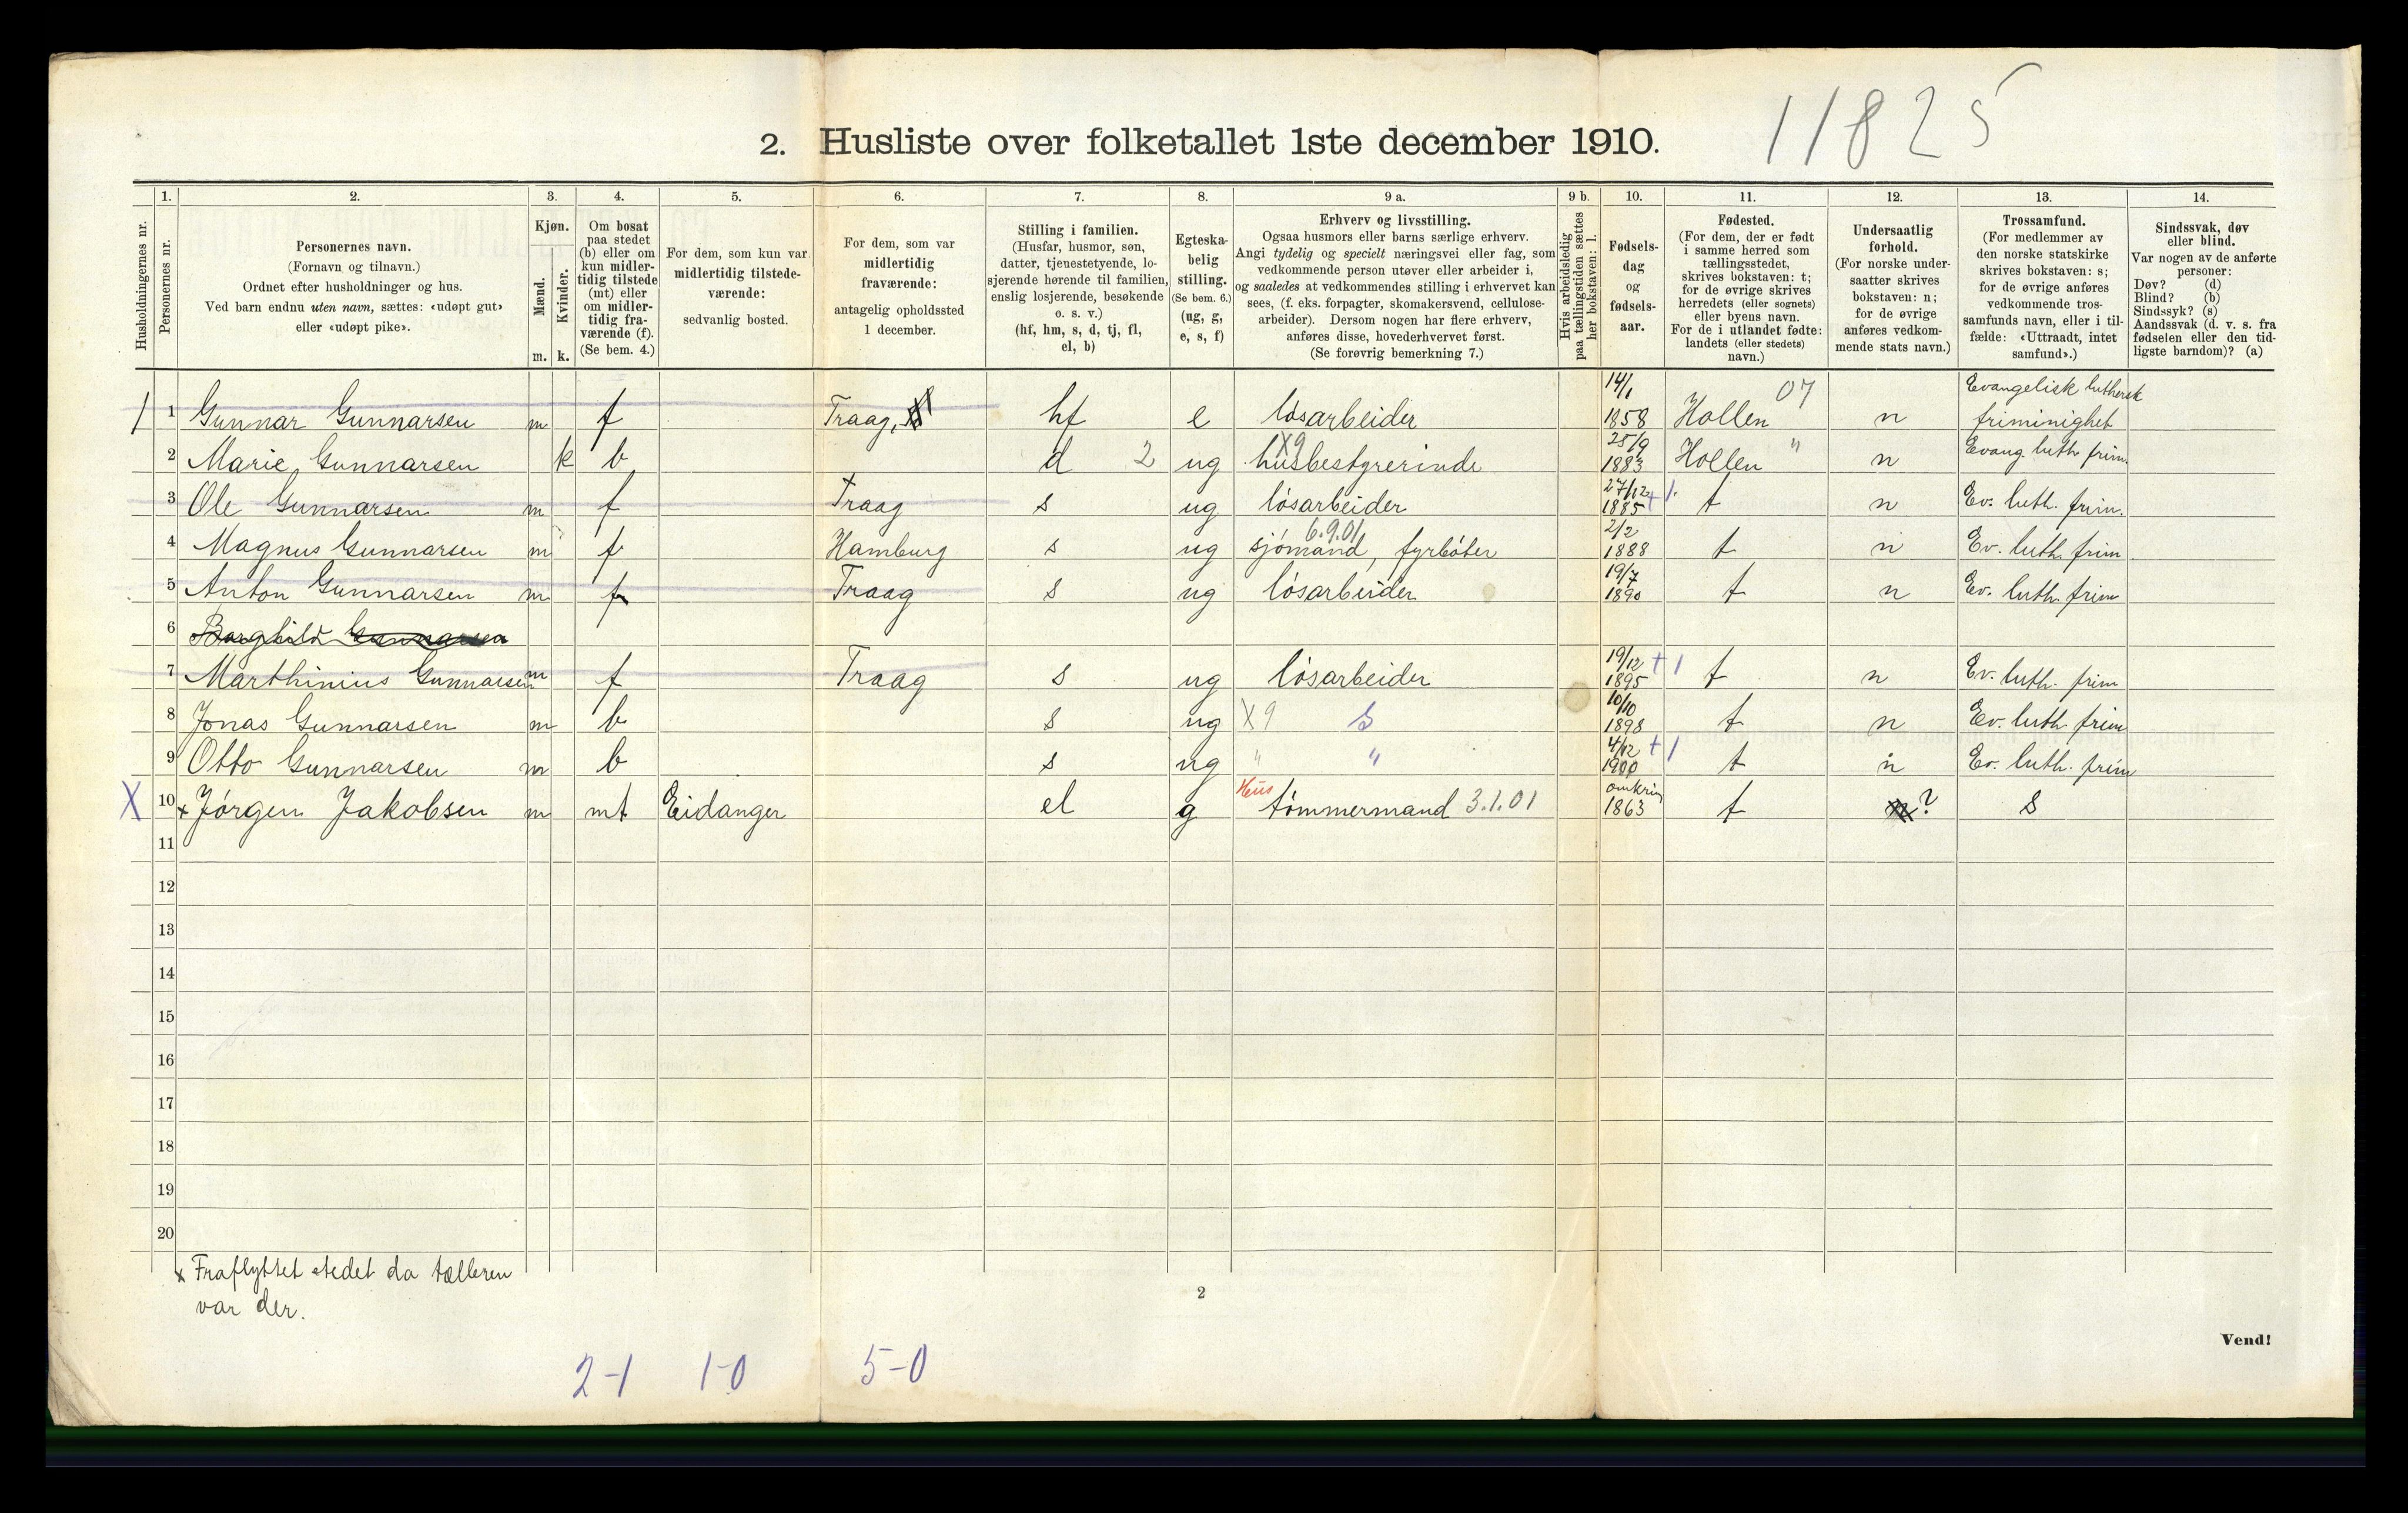 11825
2. Husliste over folketallet 1ste december 1910.
Husholdningernes nr.
1. Personernes nr.
2. Personernes navn.
(Fornavn og tilnavn.)
Ordnet efter husholdninger og hus.
Ved barn endnu uten navn, sættes: «udøpt gut»
eller «udøpt pike».
3. Kjøn.
Mænd. m.
Kvinder. k.
4. Om bosat
paa stedet
(b) eller om
kun midler-
tidig tilstede
(mt) eller
om midler-
tidig fra-
værende (f).
(Se bem. 4.)
5. For dem, som kun var
midlertidig tilstede-
værende:
sedvanlig bosted.
6. For dem, som var
midlertidig
fraværende:
antagelig opholdssted
1 december.
7. Stilling i familien.
(Husfar, husmor, søn,
datter, tjenestetyende, lo-
sjerende hørende til familien,
enslig losjerende, besøkende
o. s. v.)
(hf, hm, s, d, tj, fl,
el, b)
8. Egteska-
belig
stilling.
(Se bem. 6.)
(ug, g,
e, s, f)
9 a. Erhverv og livsstilling.
Ogsaa husmors eller barns særlige erhverv.
Angi tydelig og specielt næringsvei eller fag, som
vedkommende person utøver eller arbeider i,
og saaledes at vedkommendes stilling i erhvervet kan
sees, (f. eks. forpagter, skomakersvend, cellulose-
arbeider). Dersom nogen har flere erhverv,
anføres disse, hovederhvervet først.
(Se forøvrig bemerkning 7.)
9 b. Hvis arbeidsledig
paa tællingstiden sættes
her bokstaven: l.
10. Fødsels-
dag
og
fødsels-
aar.
11. Fødested.
(For dem, der er født
i samme herred som
tællingsstedet,
skrives bokstaven: t;
for de øvrige skrives
herredets (eller sognets)
eller byens navn.
For de i utlandet fødte:
landets (eller stedets)
navn.)
12. Undersaatlig
forhold.
(For norske under-
saatter skrives
bokstaven: n;
for de øvrige
anføres vedkom-
mende stats navn.)
13. Trossamfund.
(For medlemmer av
den norske statskirke
skrives bokstaven: s;
for de øvrige anføres
vedkommende tros-
samfunds navn, eller i til-
fælde: «Uttraadt, intet
samfund».)
14. Sindssvak, døv
eller blind.
Var nogen av de anførte
personer:
Døv? (d)
Blind? (b)
Sindssyk? (s)
Aandssvak (d. v. s. fra
fødselen eller den tid-
ligste barndom)? (a)
1 1 Gunnar Gunnarsen m f Traag, hf e løsarbeider 14/1 1858 Hollen 07 n Evangelisk luthersk friminighet
2 Marie Gunnarsen k b d 2 ug husbestyrerinde X9 25/9 1883 Hollen " n Evang luth frim.
3 Ole Gunnarsen m f Traag s ug løsarbeider 27/12 1885 +1. t n Ev. luth. frim.
4 Magnus Gunnarsen m f Hamburg s ug sjømand, fyrbøter 6.9.01 2/2 1888 t n Ev. luth. frim.
5 Anton Gunnarsen m f Traag s ug løsarbeider 19/7 1890 t n Ev. luth. frim
6 Borghild Gunnarsen
7 Marthinius Gunnarsen m f Traag s ug løsarbeider 19/12 1895 +1 t n Ev. luth. frim
8 Jonas Gunnarsen m b s ug X9 s 10/10 1898 t n Ev. luth. frim
9 Otto Gunnarsen m b s ug " " 4/12 1900 +1 t n Ev. luth. frim
X 10 x Jørgen Jakobsen m mt Eidanger el g Hus tømmermand 3.1.01 omkring 1863 t n? s
11
12
13
14
15
16
17
18
19
20
x Fraflyttet stedet da tælleren
var der.
2
Vend!
2-1 1-0 5-0